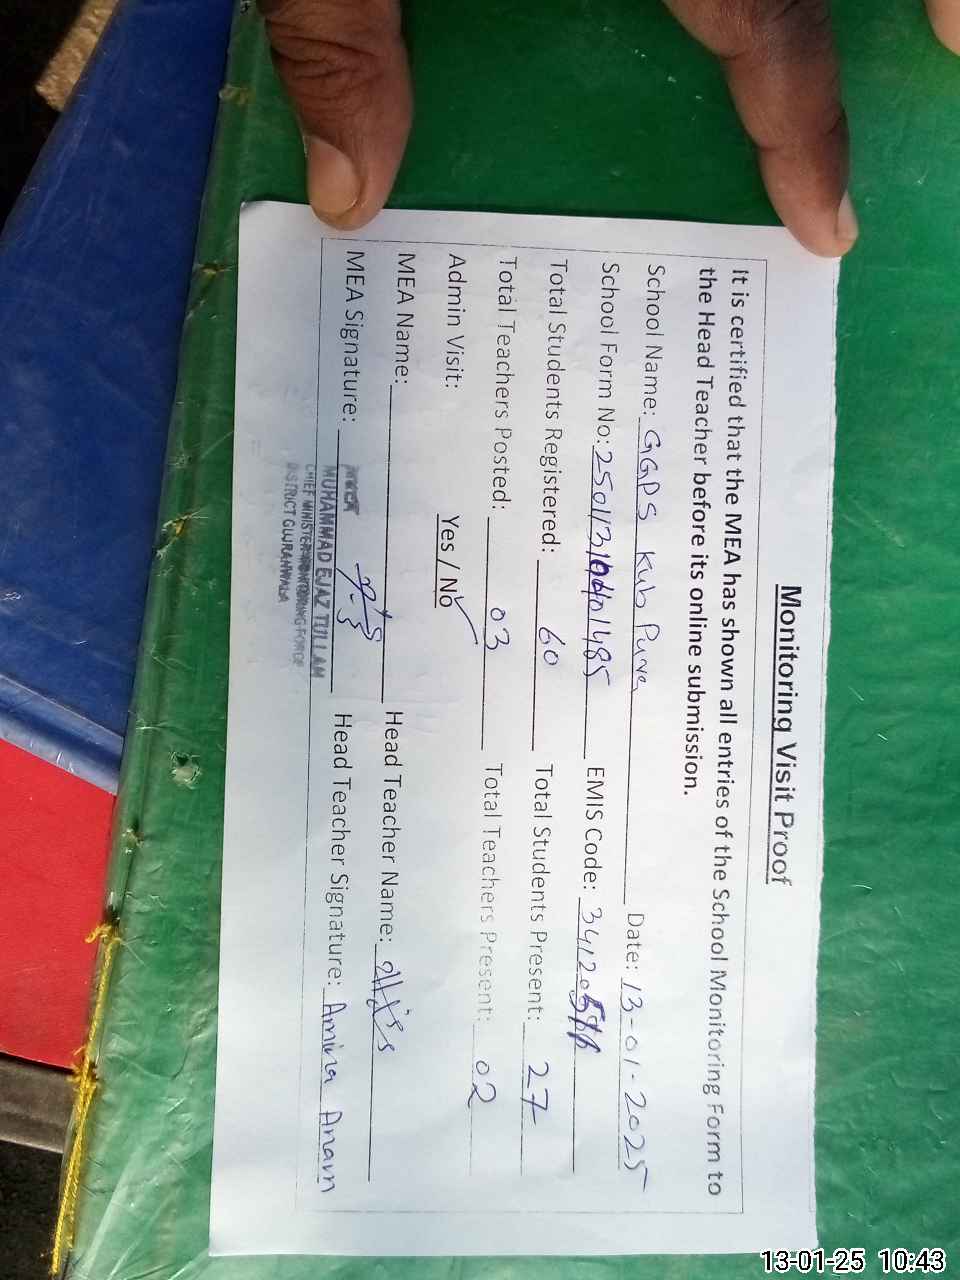 Monitoring Visit Proof
It is certified that the MEA has shown all entries of the School Monitoring Form to
the Head Teacher before its online submission.
School Name: GGPS Kub Pura Date: 13-01-2025
School Form No: EMIS Code:
Total Students Registered: 60 Total Students Present: 27
Total Teachers Posted: 03 Total Teachers Present: 02
Admin Visit: Yes / No
MEA Name: Head Teacher Name:
MEA Signature: Head Teacher Signature: Amina Anam
MUHAMMAD EJAZ TULLAM
CHIEF MINISTER MONITORING FORCE
DISTRICT GUJRANWALA
13-01-25 10:43